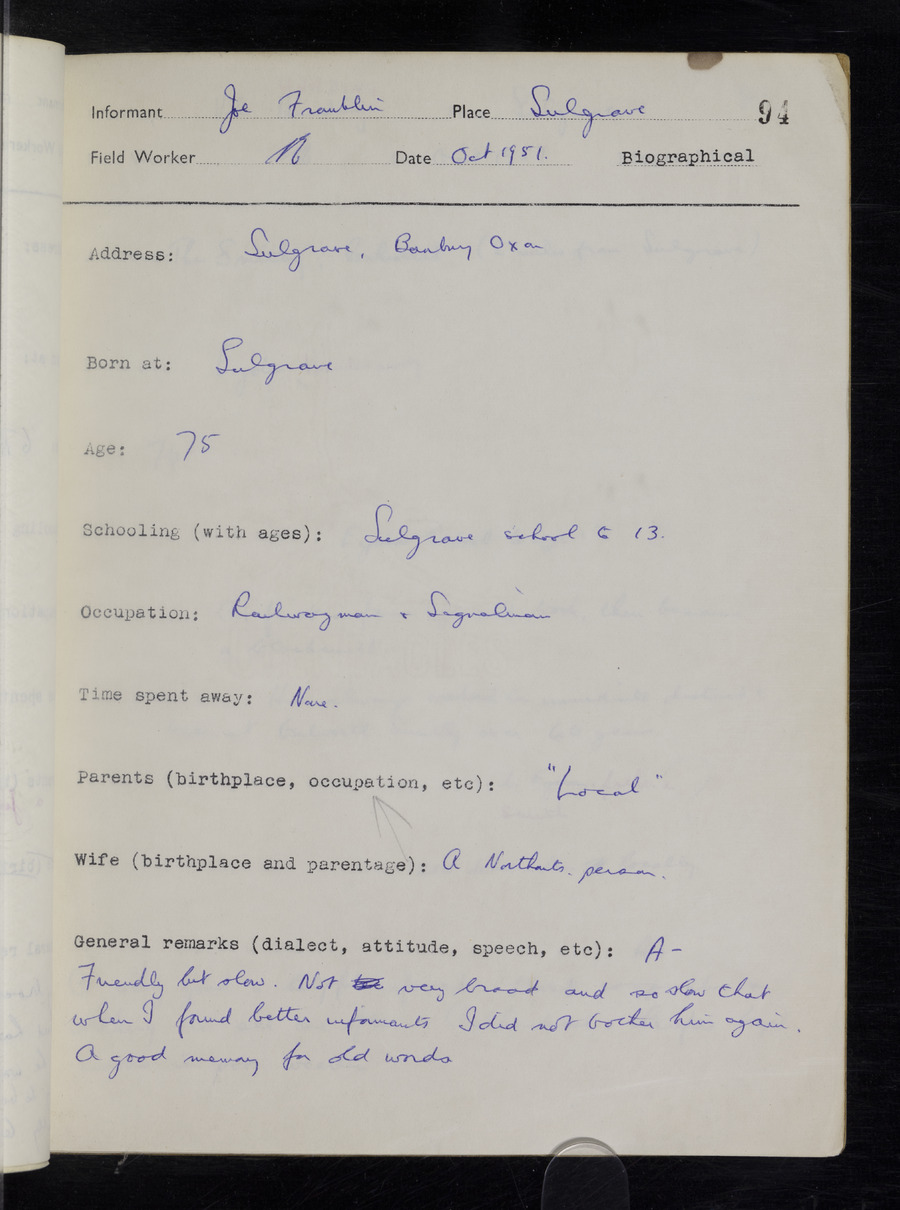 Informant Joe Franklin Place Sulgrave 94
Field Worker Date Oct 1951. Biographical
Address: Sulgrave, Banbury Oxon
Born at: Sulgrave
Age: 75
Schooling (with ages): Sulgrave school to 13.
Occupation: Railwayman + Signalman
Time spent away: None.
Parents (birthplace, occupation, etc): "Local"
Wife (birthplace and parentage): A Northants. person.
General remarks (dialect, attitude, speech, etc): A-
Friendly but slow. Not very broad and so slow that
when I found better informants I did not bother him again.
A good memory for old words